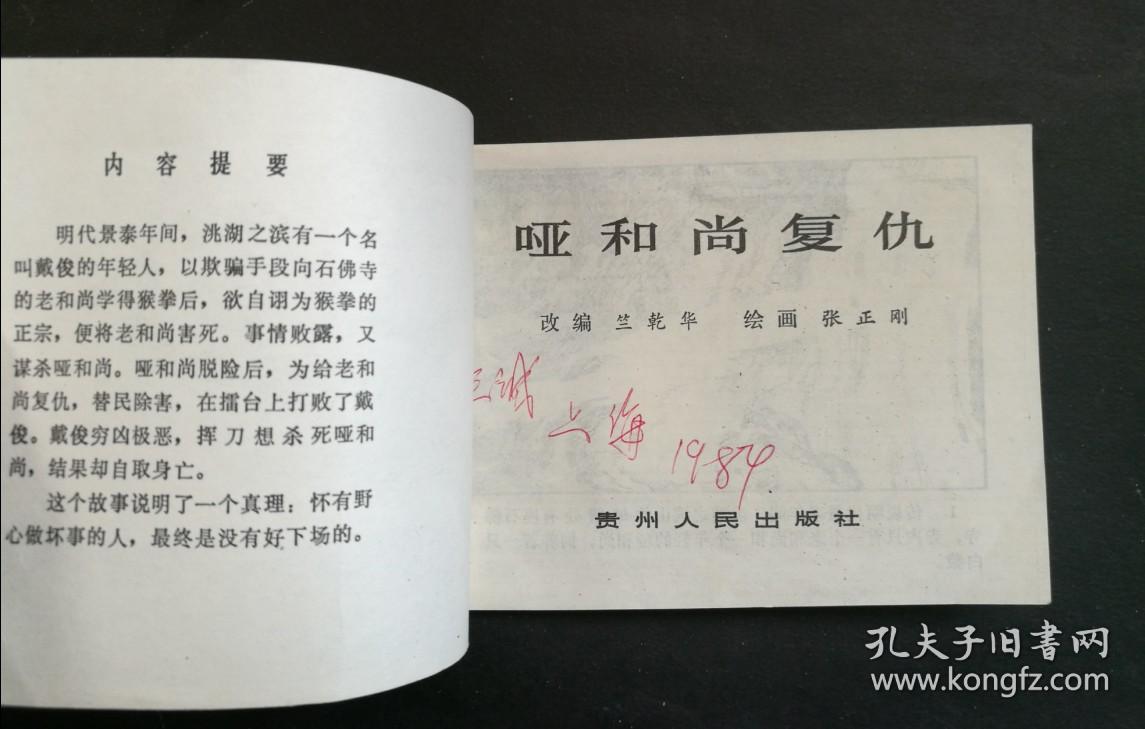 内容提要
明代景泰年间，洮湖之滨有一个名
叫戴俊的年轻人，以欺骗手段向石佛寺
的老和尚学得猴拳后，欲自诩为猴拳的
正宗，便将老和尚害死。事情败露，又
谋杀哑和尚。哑和尚脱险后，为给老和
尚复仇，替民除害，在擂台上打败了戴
俊。戴俊穷凶极恶，挥刀想杀死哑和
尚，结果却自取身亡。
这个故事说明了一个真理：怀有野
心做坏事的人，最终是没有好下场的。
哑和尚复仇
改编 竺乾华 绘画 张正刚
诚
上海
1984
贵州人民出版社
孔夫子旧书网
www.kongfz.com